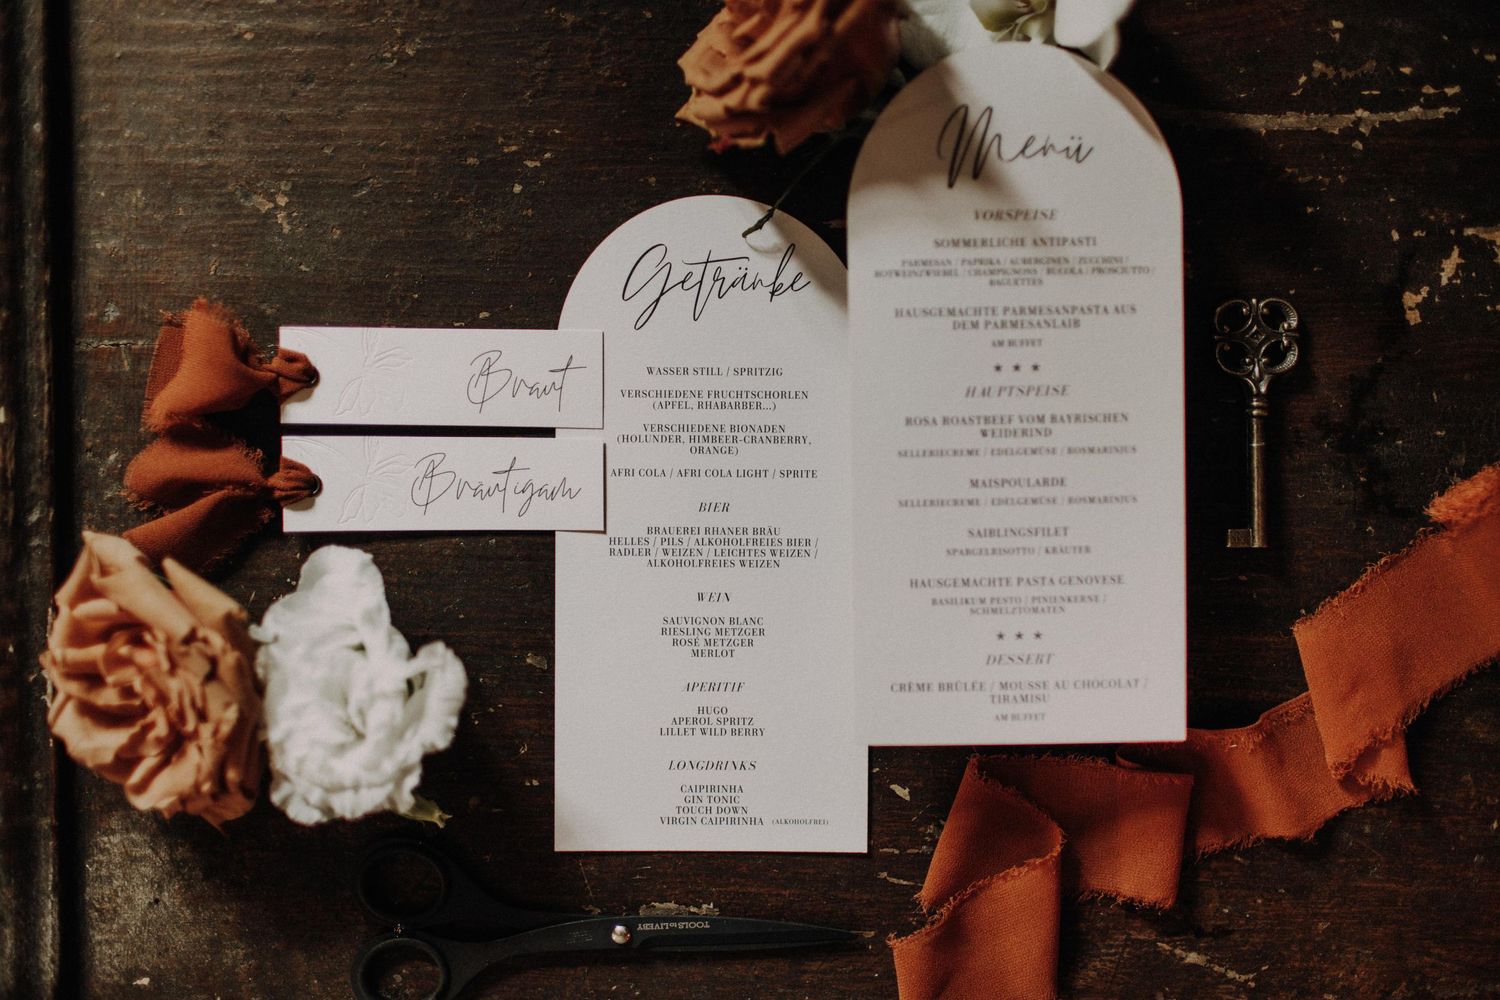 Braut
Bräutigam
Getränke
WASSER STILL / SPRITZIG
VERSCHIEDENE FRUCHTSCHORLEN
(APFEL, RHABARBER...)
VERSCHIEDENE BIONADEN
(HOLUNDER, HIMBEER-CRANBERRY,
ORANGE)
AFRI COLA / AFRI COLA LIGHT / SPRITE
BIER
BRAUEREI RHANER BRÄU
HELLES / PILS / ALKOHOLFREIES BIER /
RADLER / WEIZEN / LEICHTES WEIZEN /
ALKOHOLFREIES WEIZEN
WEIN
SAUVIGNON BLANC
RIESLING METZGER
ROSÉ METZGER
MERLOT
APERITIF
HUGO
APEROL SPRITZ
LILLET WILD BERRY
LONGDRINKS
CAIPIRINHA
GIN TONIC
TOUCH DOWN
VIRGIN CAIPIRINHA (ALKOHOLFREI)
Menü
VORSPEISE
SOMMERLICHE ANTIPASTI
PARMESAN / PAPRIKA / AUBERGINEN / ZUCCHINI /
ROTWEINZWIEBEL / CHAMPIGNONS / RUCOLA / PROSCIUTTO /
BAGUETTES
HAUSGEMACHTE PARMESANPASTA AUS
DEM PARMESANLAIB
AM BUFFET
★ ★ ★
HAUPTSPEISE
ROSA ROASTBEEF VOM BAYRISCHEN
WEIDERIND
SELLERIECREME / EDELGEMÜSE / ROSMARINJUS
MAISPOULARDE
SELLERIECREME / EDELGEMÜSE / ROSMARINJUS
SAIBLINGSFILET
SPARGELRISOTTO / KRÄUTER
HAUSGEMACHTE PASTA GENOVESE
BASILIKUM PESTO / PINIENKERNE /
SCHMELZTOMATEN
★ ★ ★
DESSERT
CRÈME BRÛLÉE / MOUSSE AU CHOCOLAT /
TIRAMISU
AM BUFFET
TOOLS to LIVEBY